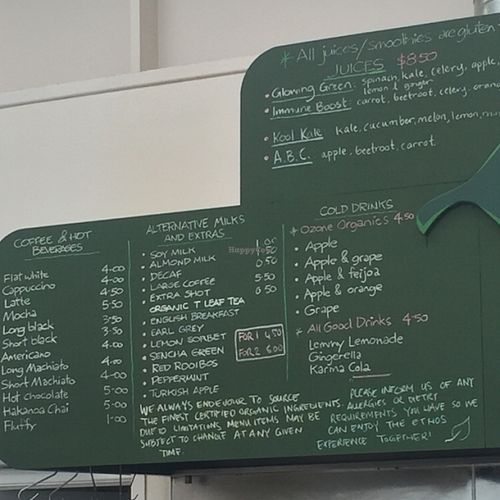 * All juices/smoothies are gluten
JUICES $8.50
• Glowing Green: spinach, kale, celery, apple,
lemon & ginger
• Immune Boost: carrot, beetroot, celery, orange
• Kool Kale kale, cucumber, melon, lemon,
• A.B.C. apple, beetroot, carrot.
COFFEE & HOT
BEVERAGES
Flat white 4.00
Cappuccino 4.00
Latte 4.50
Mocha 5.50
Long black 3.50
Short black 3.50
Americano 4.00
Long Machiato 4.00
Short Machiato 4.00
Hot chocolate 5.00
Hakanoa Chai 5.00
Fluffy 1.00
ALTERNATIVE MILKS
AND EXTRAS
• SOY MILK
• ALMOND MILK
• DECAF 0.50
• LARGE COFFEE 5.50
• EXTRA SHOT 0.50
ORGANIC T LEAF TEA
• ENGLISH BREAKFAST
• EARL GREY
• LEMON SORBET
• SENCHA GREEN
• RED ROOIBOS
• PEPPERMINT
• TURKISH APPLE
FOR 1 4.50
FOR 2 8.00
COLD DRINKS
* Ozone Organics 4.50
• Apple
• Apple & grape
• Apple & feijoa
• Apple & orange
• Grape
* All Good Drinks 4.50
Lemmy Lemonade
Gingerella
Karma Cola
WE ALWAYS ENDEAVOUR TO SOURCE
THE FINEST CERTIFIED ORGANIC INGREDIENTS.
DUE TO LIMITATIONS, MENU ITEMS MAY BE
SUBJECT TO CHANGE AT ANY GIVEN
TIME.
PLEASE INFORM US OF ANY
ALLERGIES OR DIETRY
REQUIREMENTS YOU HAVE SO WE
CAN ENJOY THE ETHOS
EXPERIENCE TOGETHER!
HappyCow